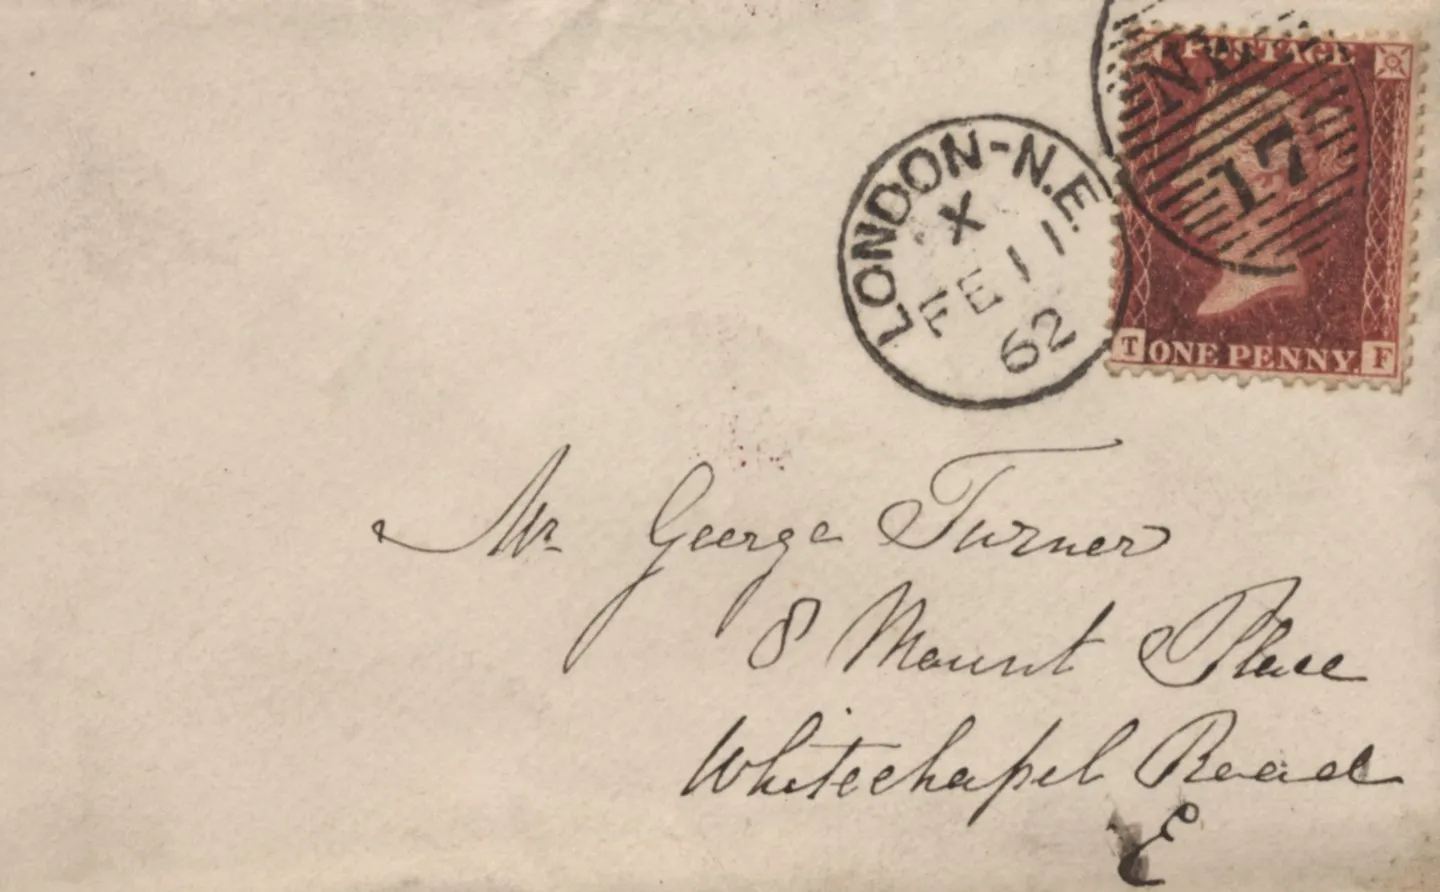 POSTAGE
N.E
17
LONDON-N.E.
X
FE 11
62
T ONE PENNY. F
Mr George Turner
8 Mount Place
Whitechapel Road
E